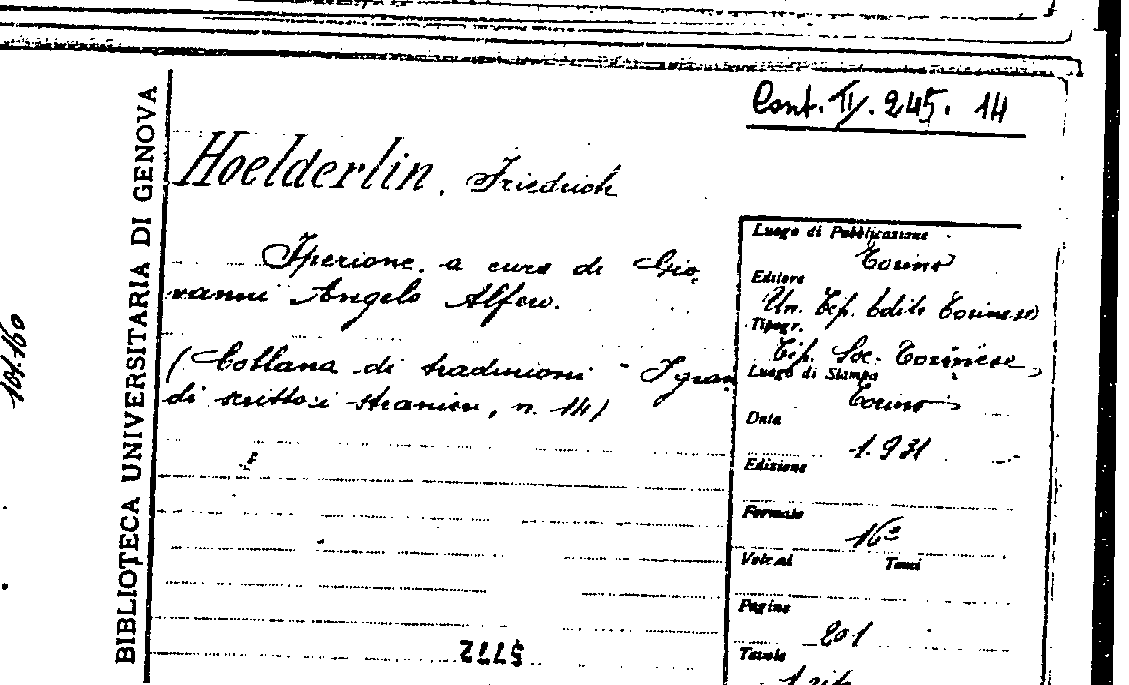 Cont. II. 245. 14
BIBLIOTECA UNIVERSITARIA DI GENOVA
Hoelderlin, Friedrich
Iperione. a cura di Gio-
vanni Angelo Alfero.
(Collana di traduzioni "I gran
di scrittori stranieri, n. 14)
Luogo di Pubblicazione
Torino
Editore
Un. Tip. Edit. Torinese
Tipogr.
Tip. Soc. Torinese
Luogo di Stampa
Torino
Data
1931
Edizione
Formato
16º
Volumi Tomi
Pagine
201
Tavole
1 rit.
101160
5772